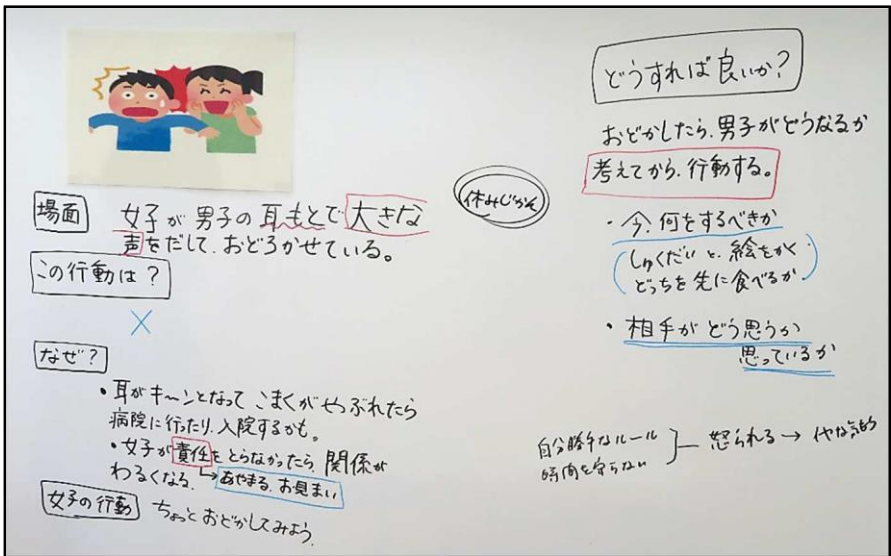 場面
女子が男子の耳もとで大きな
声をだして、おどろかせている。
この行動は?
×
なぜ?
・耳がキーンとなってこまくがやぶれたら
病院に行ったり、入院するかも。
・女子が責任をとらなかったら、関係が
わるくなる。→あやまる、お見まい
女子の行動 ちょっとおどかしてみよう。
休みじかん
どうすれば良いか?
おどかしたら、男子がどうなるか
考えてから、行動する。
・今、何をするべきか
(しゅくだいと、絵をかく
どっちを先に食べるか)
・相手がどう思うか
思っているか
自分勝手なルール
時間を守らない
怒られる→